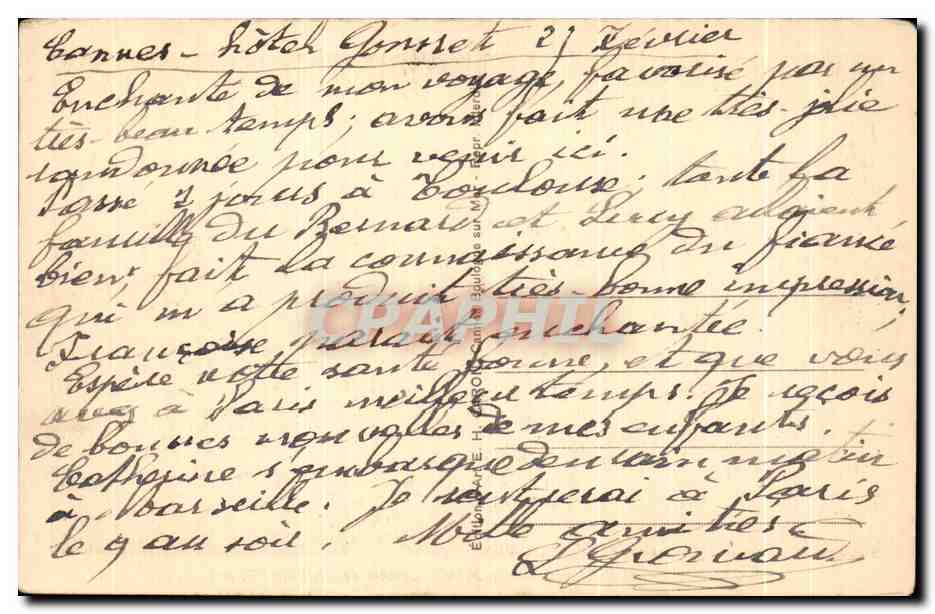 Cannes - hôtel Gonnet 27 Février
Enchanté de mon voyage, favorisé par un
très beau temps ; avons fait une très jolie
randonnée pour venir ici.
Passé 2 jours à Toulouse ; toute la
famille du Bernard et Percy allaient
bien, fait la connaissance du fiancé
qui m'a produit très bonne impression ;
Françoise parait enchantée.
Espère votre santé bonne, et que vous
avez à Paris meilleur temps. Je reçois
de bonnes nouvelles de mes enfants.
Catherine s'embarque demain matin
à Marseille. Je rentrerai à Paris
le 9 au soir. Mille amitiés
CPAPHIL
Boulogne sur Mer - Repr.